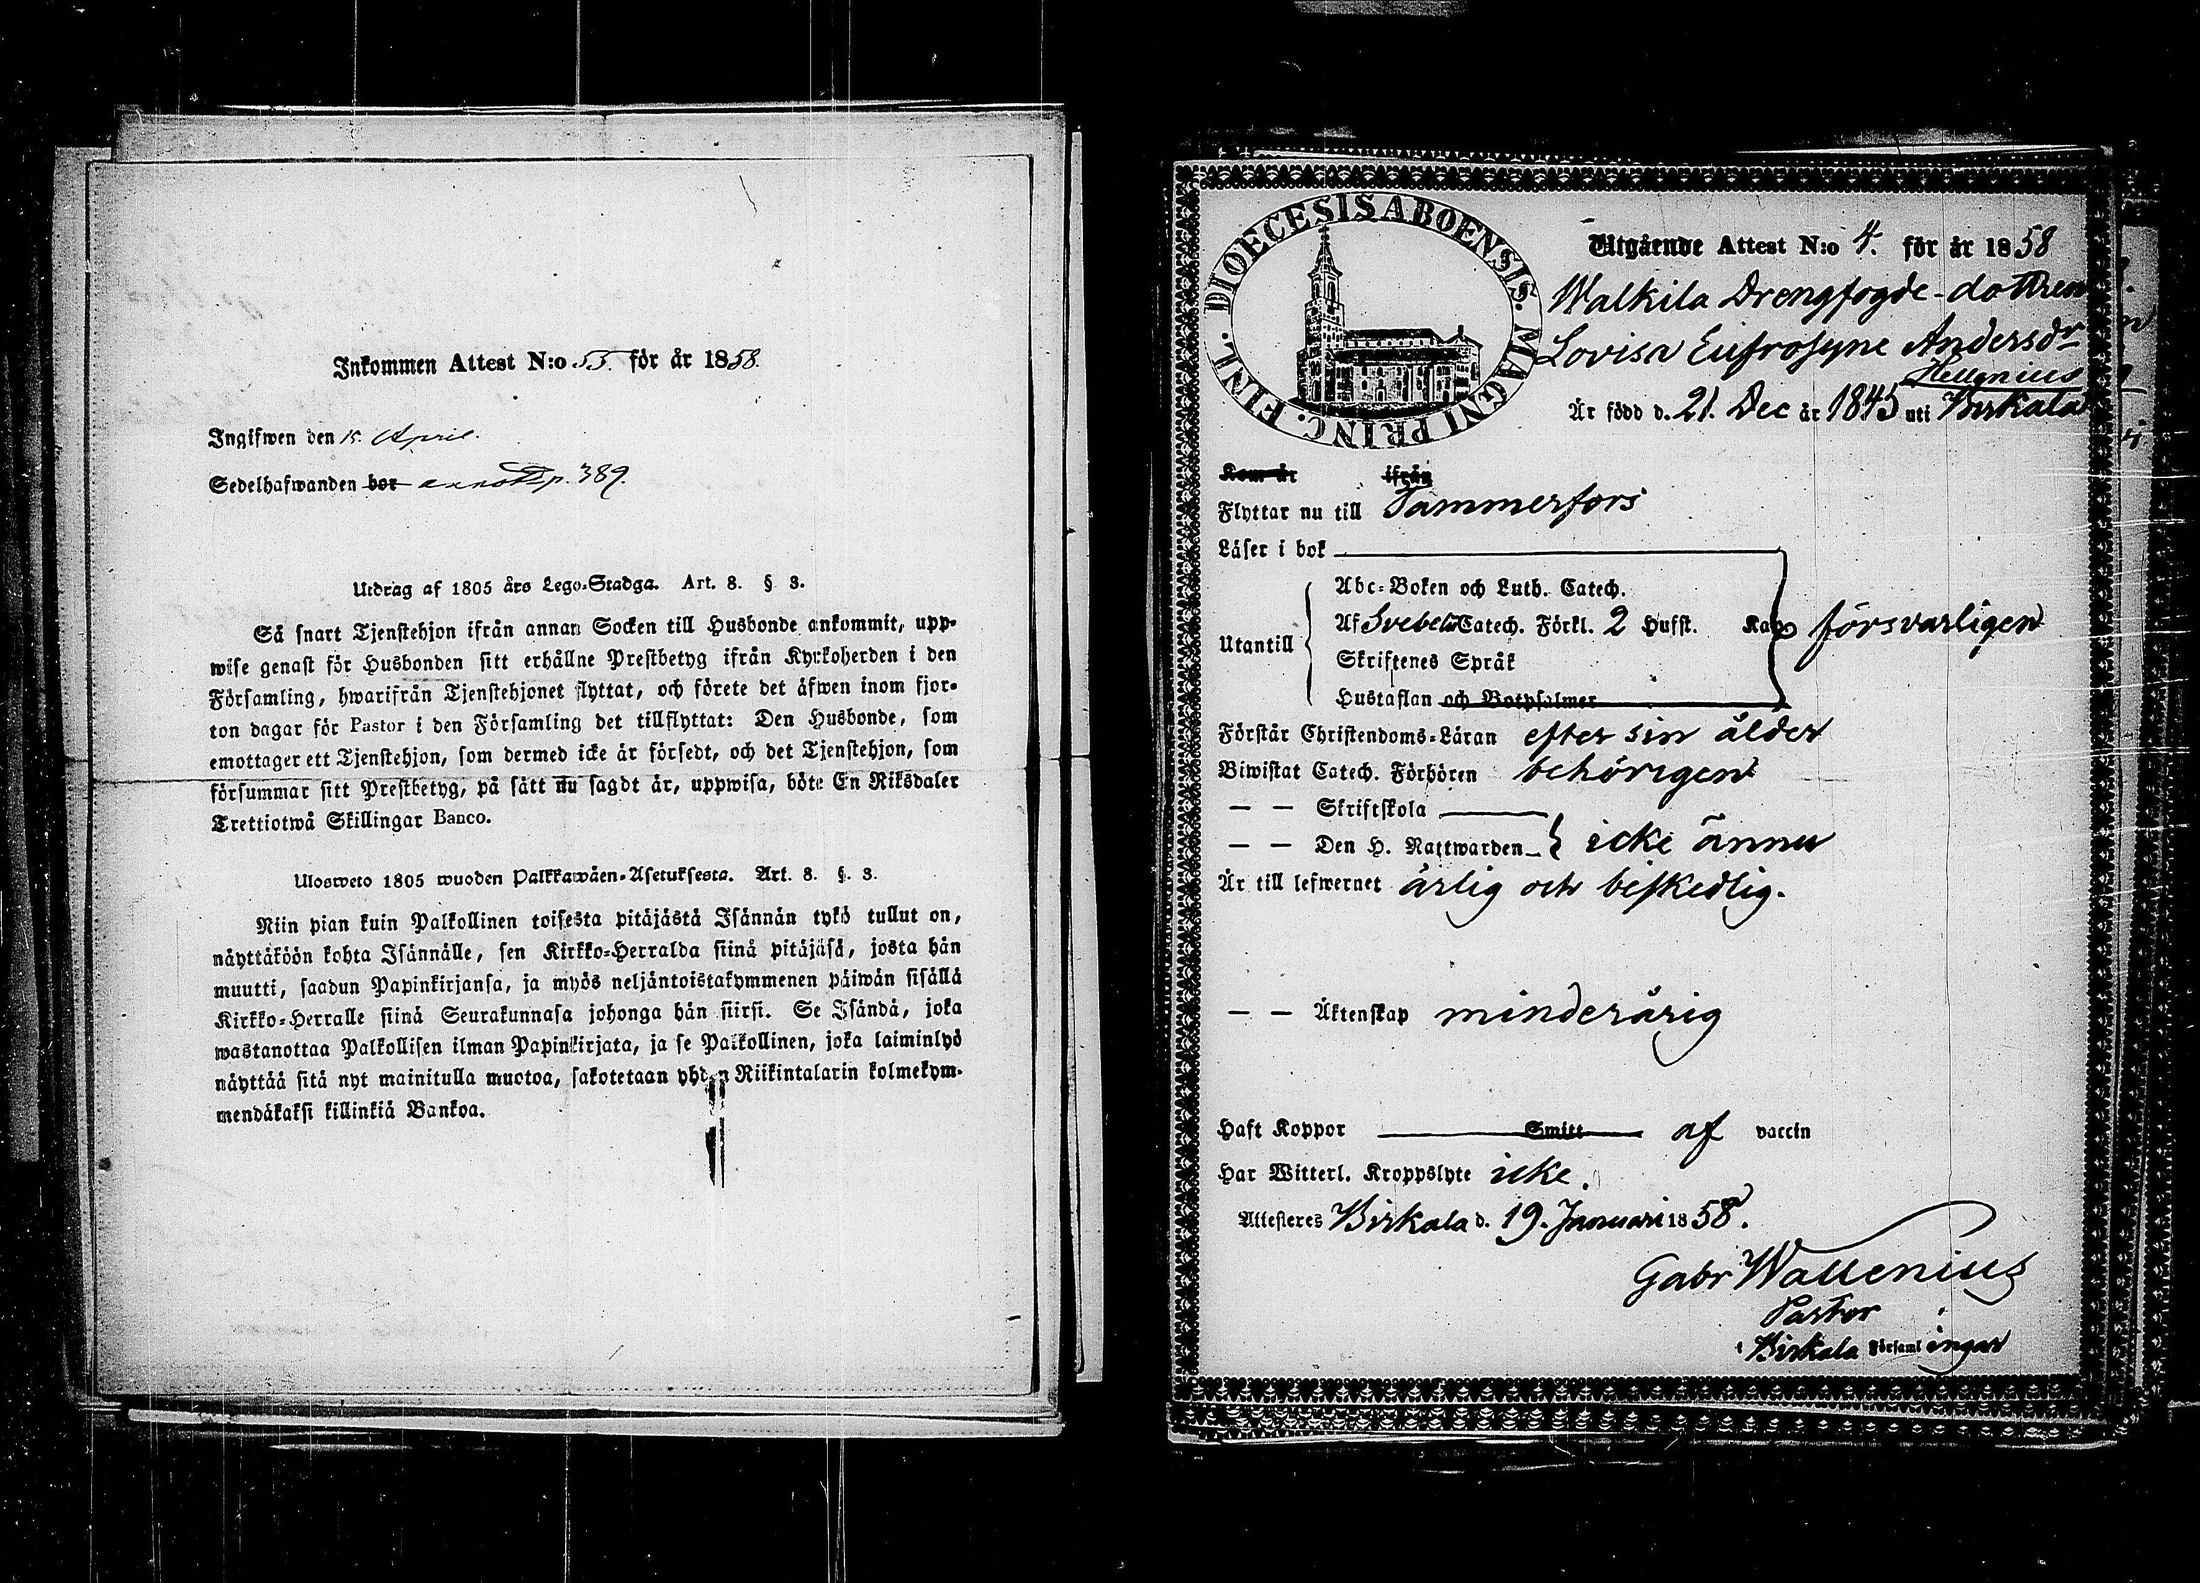 Inkommen Attest N:o 55. för år 1858.
Ingifwen den 15. April.
Sedelhafwanden bor annot. p. 389.
Utdrag af 1805 års Lego-Stadga. Art. 8. § 3.
Så snart Tjenstehjon ifrån annan Socken till Husbonde ankommit, upp-
wise genast för Husbonden sitt erhållne Prestbetyg ifrån Kyrkoherden i den
Församling, hwarifrån Tjenstehjonet flyttat, och förete det äfwen inom fjor-
ton dagar för Pastor i den Församling det tillflyttat: Den Husbonde, som
emottager ett Tjenstehjon, som dermed icke är försedt, och det Tjenstehjon, som
försummar sitt Prestbetyg, på sätt nu sagdt är, uppwisa, böte En Riksdaler
Trettiotwå Skillingar Banco.
Ulosweto 1805 wuoden Palkkawäen-Asetuksesta. Art. 8. §. 3.
Niin pian kuin Palkollinen toisesta pitäjästä Isännän tykö tullut on,
näyttäköön kohta Isännälle, sen Kirkko-Herralda siinä pitäjäsä, josta hän
muutti, saadun Papinkirjansa, ja myös neljäntoistakymmenen päiwän sisällä
Kirkko-Herralle siinä Seurakunnasa johonga hän siirsi. Se Isändä, joka
wastanottaa Palkollisen ilman Papinkirjata, ja se Palkollinen, joka laiminlyö
näyttää sitä nyt mainitulla muotoa, sakotetaan yhden Riikintalarin kolmekym-
mendäkaksi killinkiä Bankoa.
FINL. DIOECESIS ABOENSIS. MAGNI PRINC.
Utgående Attest N:o 4. för år 1858
Walkila Drengfogde-dottren
Lovisa Eufrosyne Andersdr
Hellenius
Är född d. 21. Dec år 1845 uti Birkala
Kom år ifrån
Flyttar nu till Tammerfors
Läser i bok
Abc-Boken och Luth. Catech.
Utantill Af Svebelii Catech. Förkl. 2 Hufst. Kap försvarligen
Skriftenes Språk
Hustaflan och Botpsalmer
Förstår Christendoms-Läran efter sin ålder
Biwistat Catech. Förhören behörigen
— — Skriftskola
— — Den H. Nattwarden icke ännu
Är till lefwernet ärlig och beskedlig.
— — Äktenskap minderårig
Haft Koppor Smitt af vaccin
Har Witterl. Kroppslyte icke.
Attesteres Birkala d. 19. Januari 1858.
Gabr Wallenius
Pastor
i Birkala Församlingar